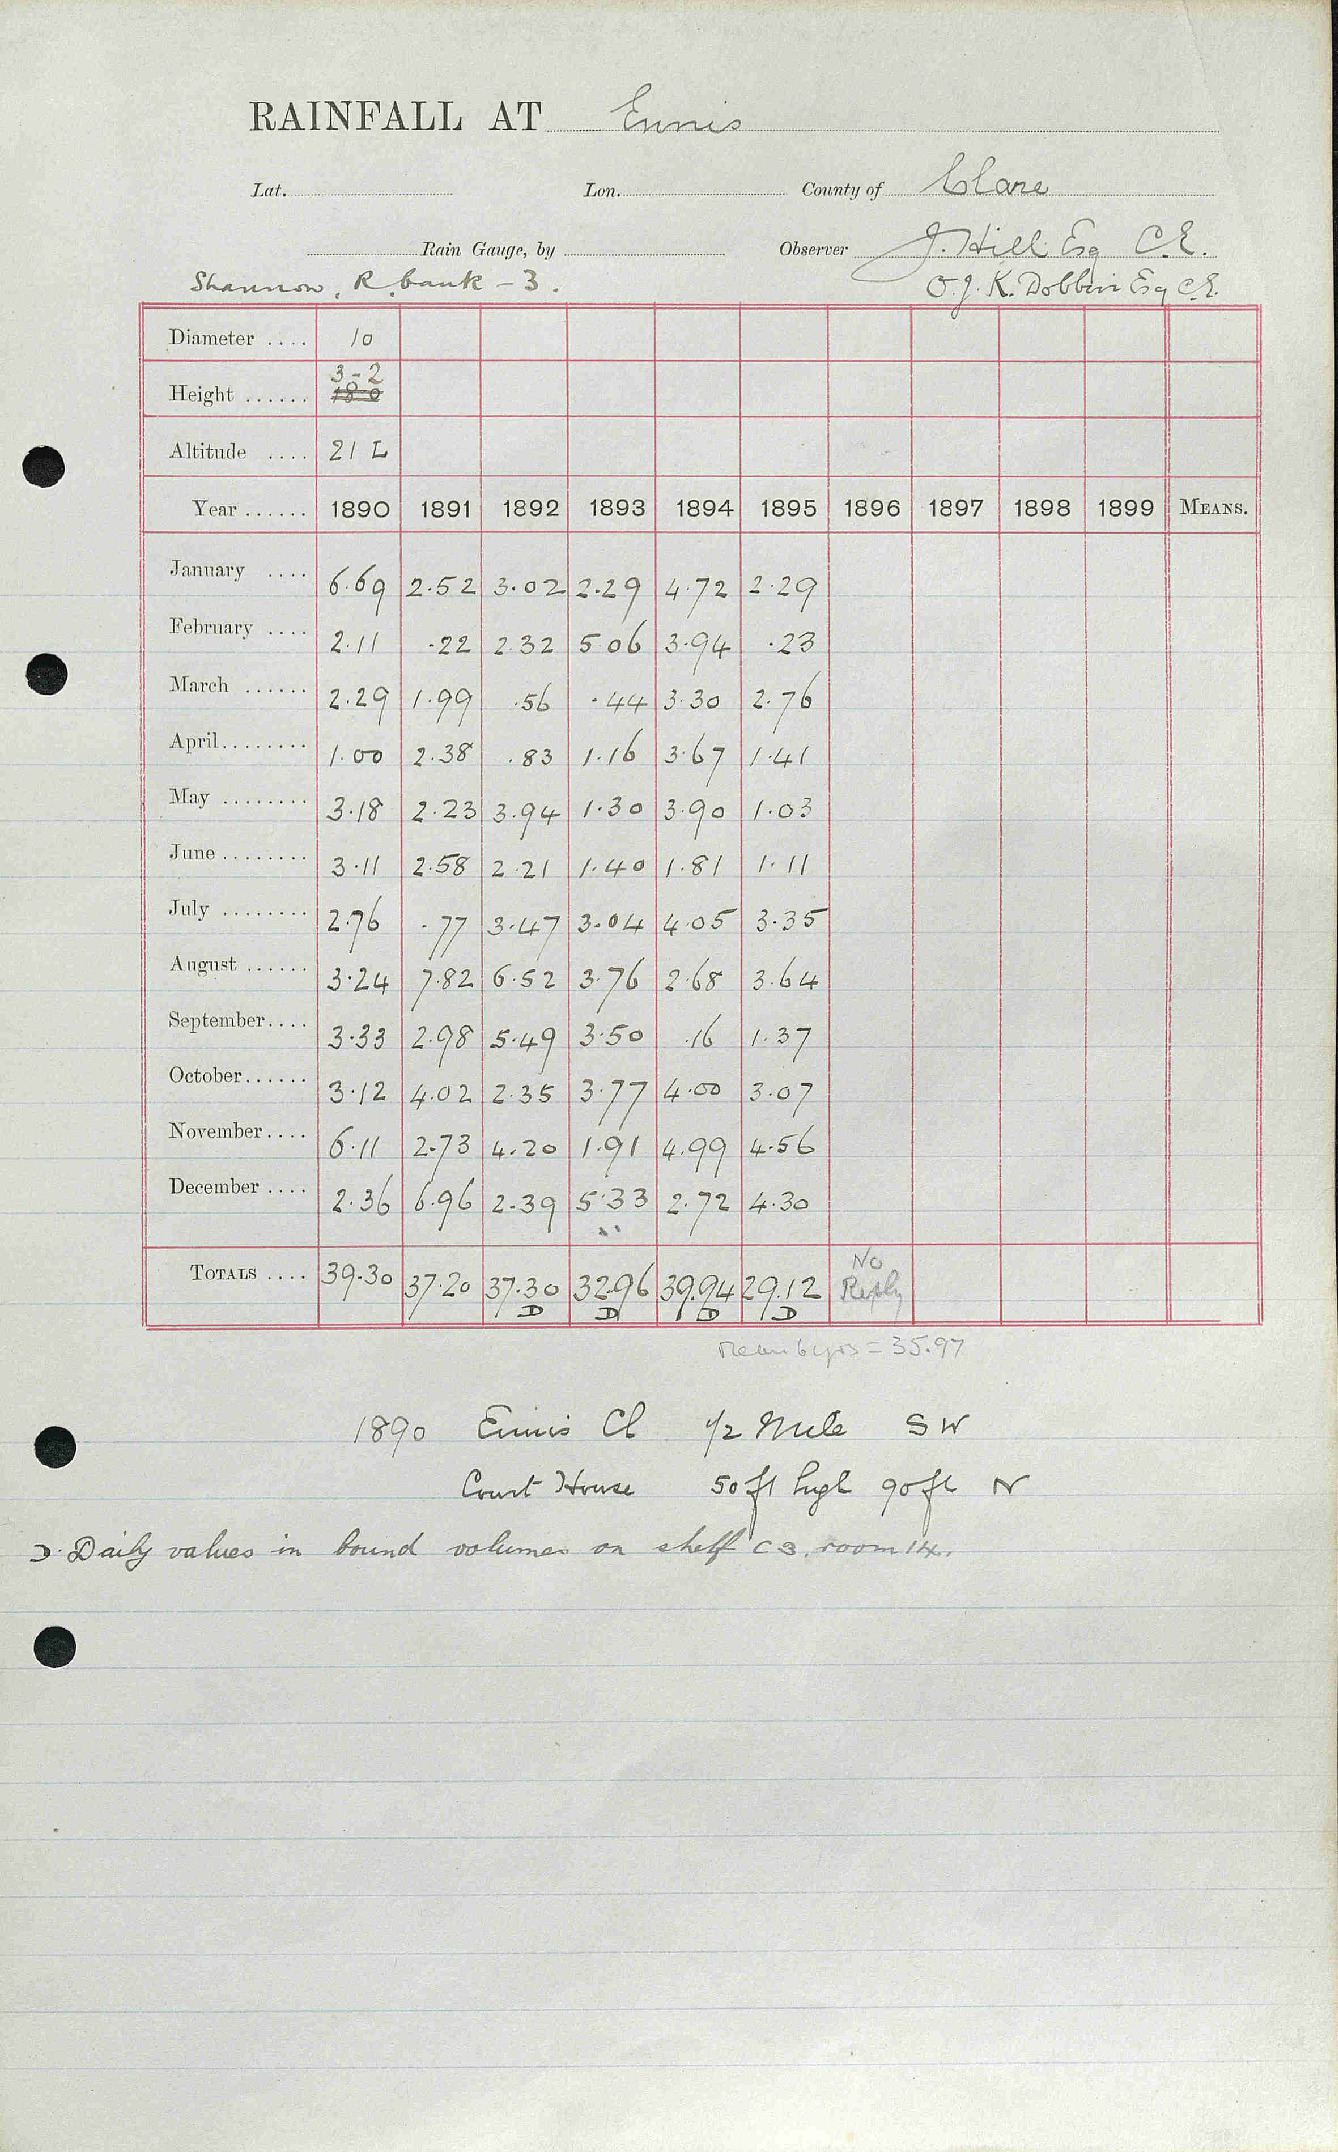 RAINFALL AT Ennis
Lat. Lon. County of Clare
Rain Gauge, by Observer J. Hill Esq C.E.
Shannon, R. bank - 3. O.J.K. Dobbin Esq C.E.
Diameter .... 10
Height ...... 3-2 18-0
Altitude .... 21 L
Year ...... 1890 1891 1892 1893 1894 1895 1896 1897 1898 1899 MEANS.
January .... 6.69 2.52 3.02 2.29 4.72 2.29
February .... 2.11 .22 2.32 5 06 3.94 .23
March ...... 2.29 1.99 .56 .44 3.30 2.76
April ........ 1.00 2.38 .83 1.16 3.67 1.41
May ........ 3.18 2.23 3.94 1.30 3.90 1.03
June ........ 3.11 2.58 2.21 1.40 1.81 1.11
July ........ 2.76 .77 3.47 3.04 4.05 3.35
August ...... 3.24 7.82 6.52 3.76 2.68 3.64
September .... 3.33 2.98 5.49 3.50 .16 1.37
October ...... 3.12 4.02 2.35 3.77 4.00 3.07
November .... 6.11 2.73 4.20 1.91 4.99 4.56
December .... 2.36 6.96 2.39 5.33 2.72 4.30
TOTALS .... 39.30 37.20 37.30 32.96 39.94 29.12 No Reply
D D D D
Mean 6 yrs = 35.97
1890 Ennis Ch 1/2 Mile SW
Court House 50 ft high 90 ft N
D. Daily values in bound volumes on shelf C3, room 14.